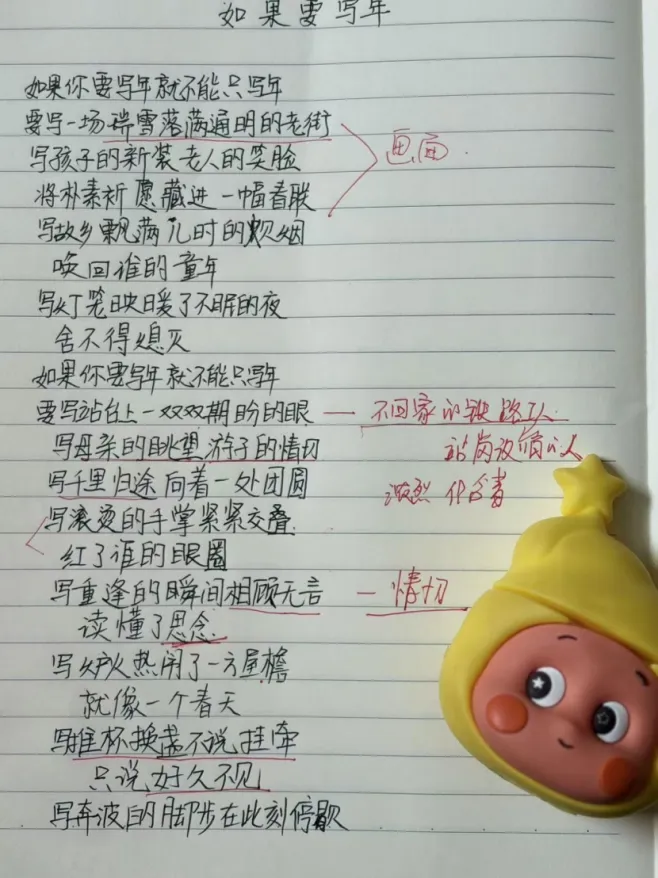 如果要写年
如果你要写年就不能只写年
要写一场瑞雪落满通明的老街
写孩子的新装老人的笑脸
画面.
将朴素祈愿藏进一幅春联
写故乡飘满儿时的炊烟
唤回谁的童年
写灯笼映暖了不眠的夜
舍不得熄灭
如果你要写年就不能只写年
要写站台上一双双期盼的眼
不回家的铁路工人
写母亲的眺望游子的情切
站岗
的人
写千里归途向着一处团圆
写滚烫的手掌紧紧交叠
红了谁的眼圈
写重逢的瞬间相顾无言
情切
读懂了思念
写炉火热闹了一方屋檐
就像一个春天
写推杯换盏不说挂牵
只说好久不见
写奔波的脚步在此刻停歇